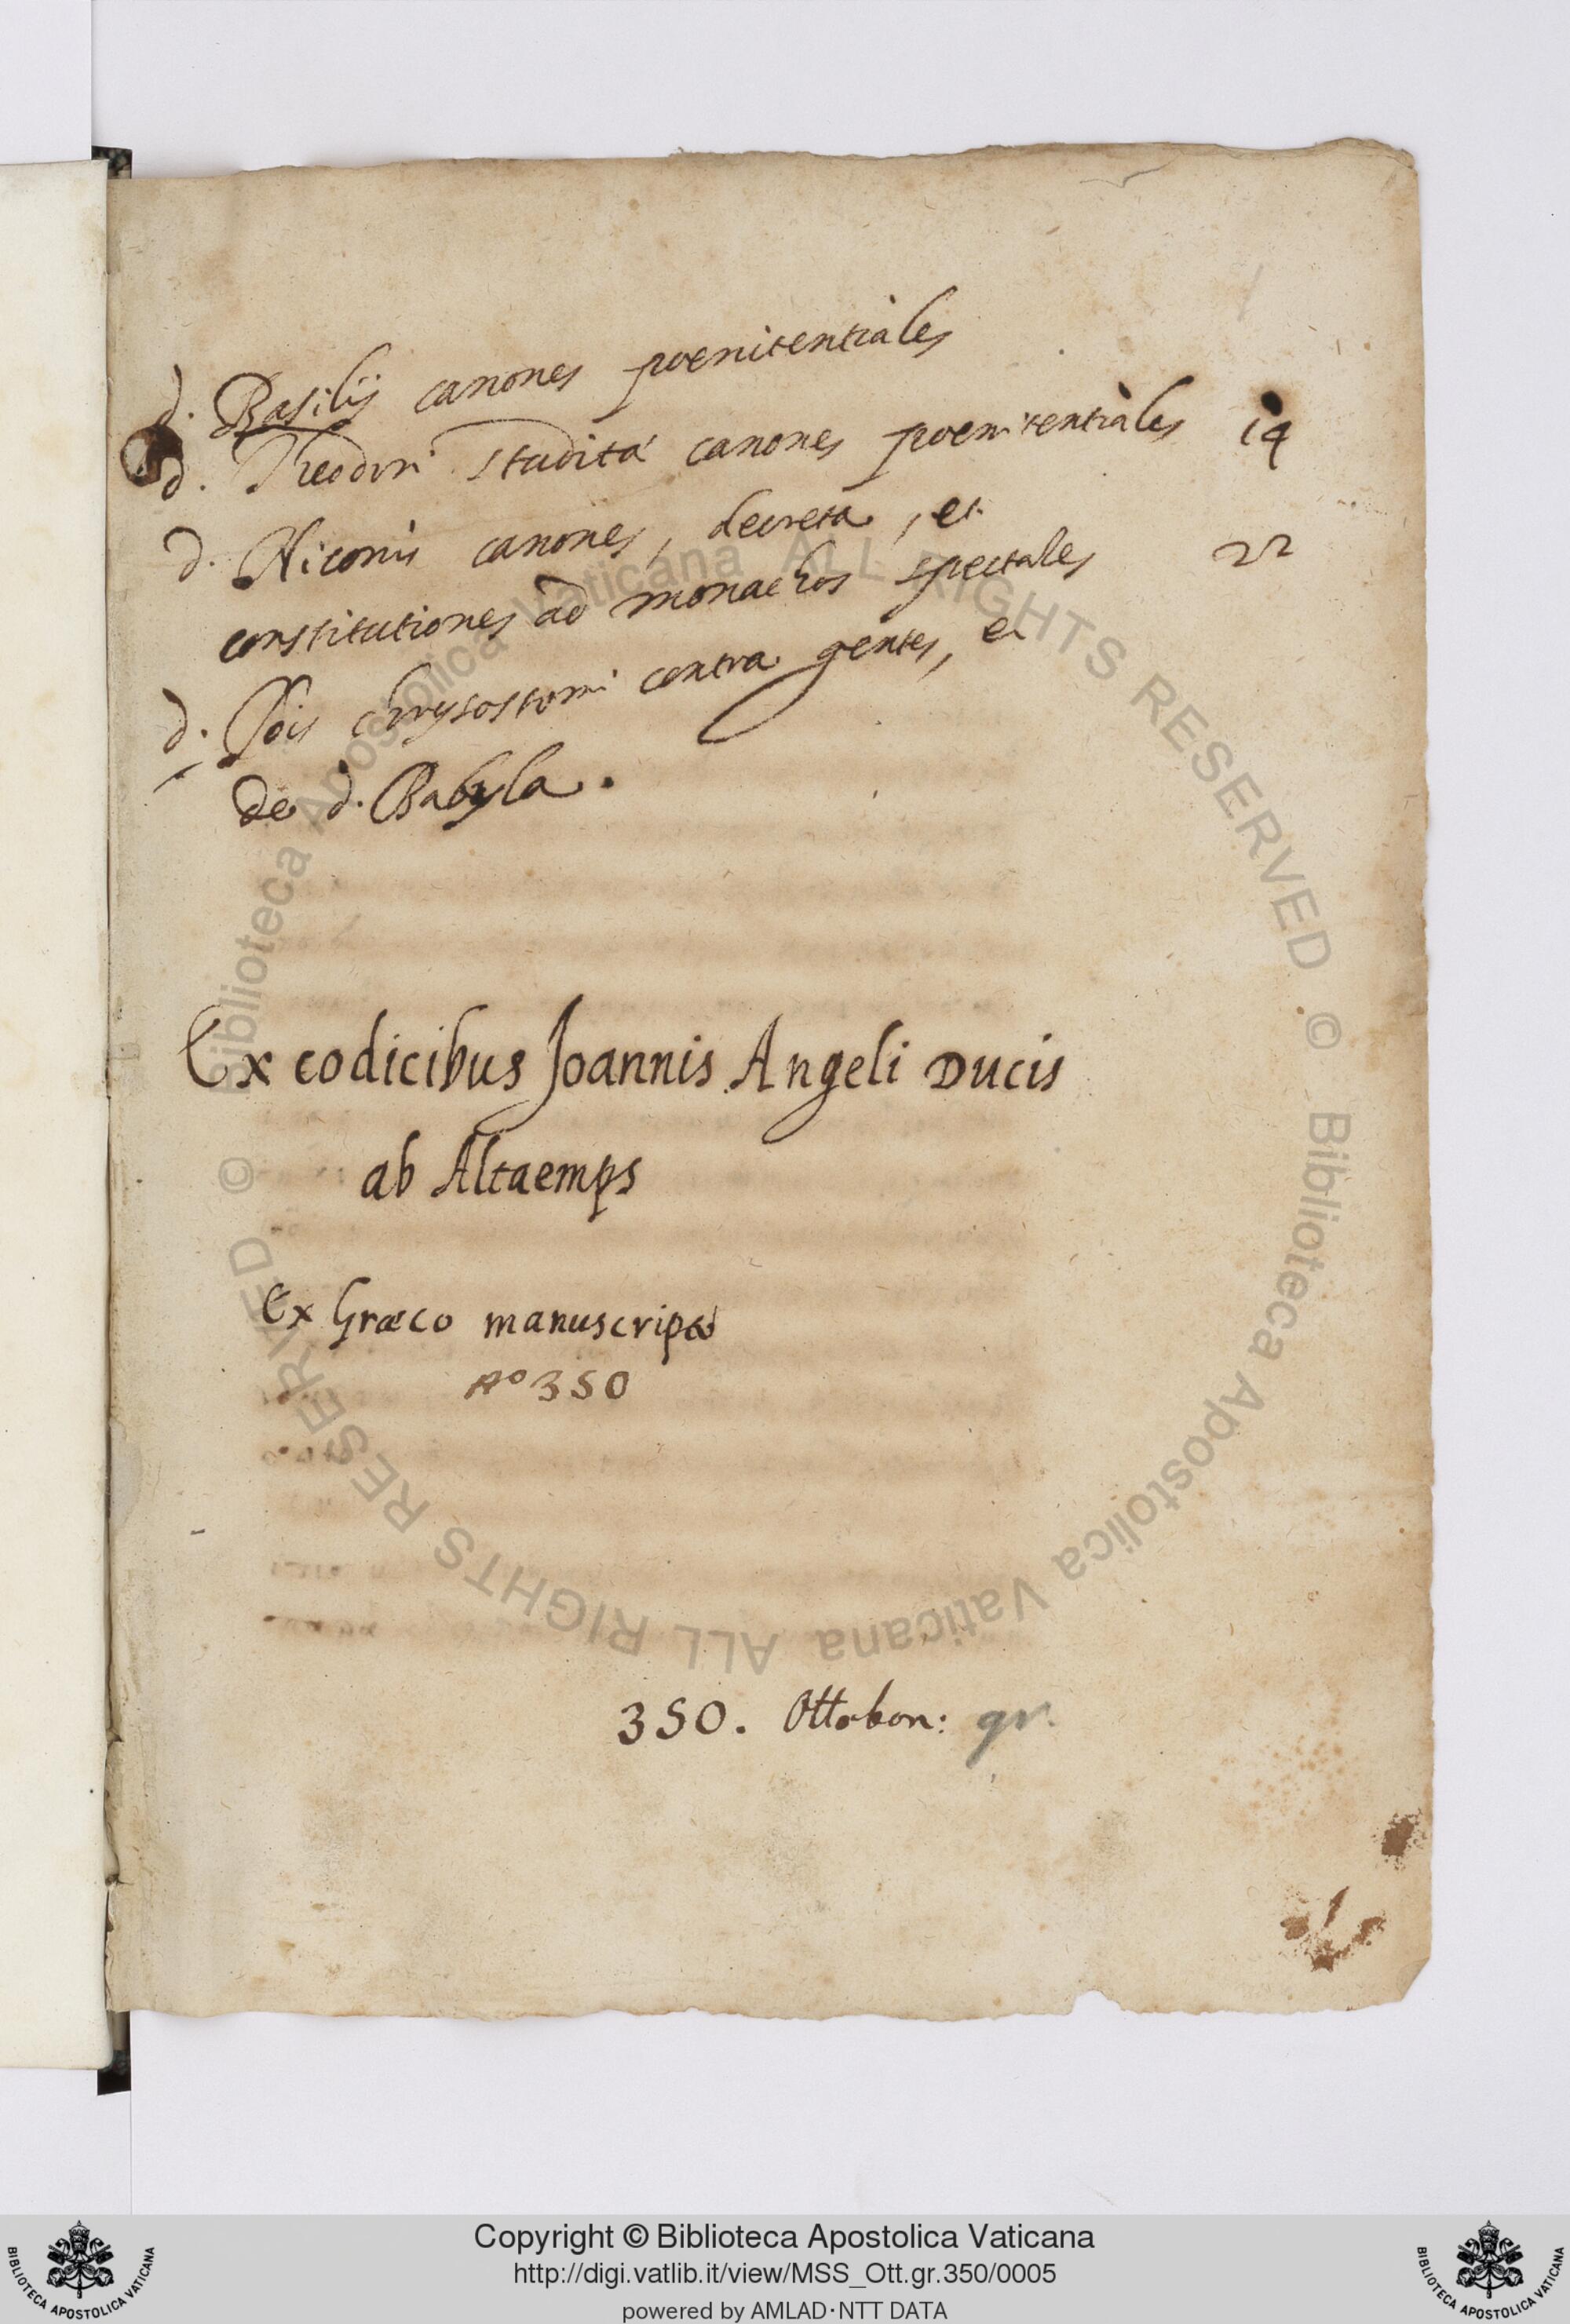 d. Basilij canones poenitentiales
d. Theodori studitæ canones poenitentiales 14
d. Niconis canones, decreta, et
constitutiones ad monachos spectales 22
d. Jois chrysostomi contra gentes, et
de d. Babyla.
Ex codicibus Joannis Angeli Ducis
ab Altaemps
Ex Græco manuscripto
No 350
350. Ottobon: gr.
© Biblioteca Apostolica Vaticana ALL RIGHTS RESERVED © Biblioteca Apostolica Vaticana ALL RIGHTS RESERVED
Copyright © Biblioteca Apostolica Vaticana
http://digi.vatlib.it/view/MSS_Ott.gr.350/0005
powered by AMLAD·NTT DATA
BIBLIOTECA APOSTOLICA VATICANA
BIBLIOTECA APOSTOLICA VATICANA